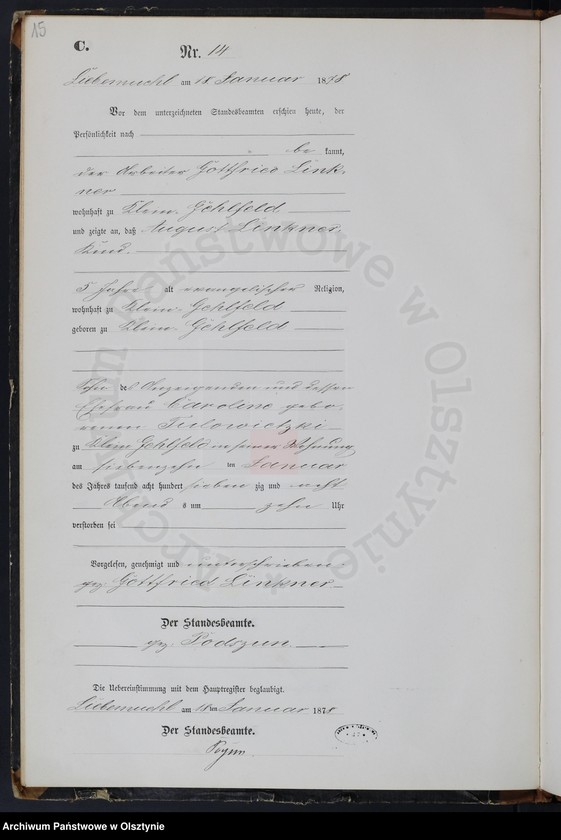 15
C.
Nr. 14
Liebemuehl am 18 Januar 1878
Vor dem unterzeichneten Standesbeamten erschien heute, der
Persönlichkeit nach
be kannt,
der Arbeiter Gottfried Link,
ner
wohnhaft zu Klein Gehlfeld
und zeigte an, daß August Linkner,
Kind
5 Jahre alt evangelischer Religion,
wohnhaft zu Klein Gehlfeld
geboren zu Klein Gehlfeld
Sohn des Anzeigenden und dessen
Ehefrau Caroline gebo,
renen
zu Klein Gehlfeld in seiner Wohnung
am siebenzehn ten Januar
des Jahres tausend acht hundert sieben zig und acht
Abend s um zehn Uhr
verstorben sei
Vorgelesen, genehmigt und unterschrieben
gez. Gottfried Linkner
Der Standesbeamte.
gez. Podszun
Die Uebereinstimmung mit dem Hauptregister beglaubigt.
Liebemuehl am 18ten Januar 1878
Der Standesbeamte.
Archiwum Państwowe w Olsztynie
Archiwum Państwowe w Olsztynie